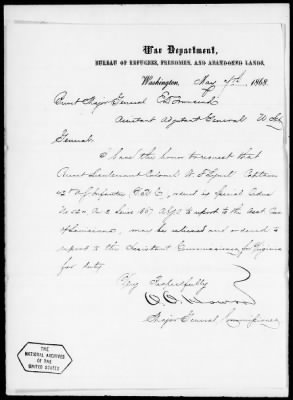 War Department,
BUREAU OF REFUGEES, FREEDMEN, AND ABANDONED LANDS,
Washington, May 7th, 1868
Brevt Major General E D Townsend
Assistant Adjutant General U S
General:
I have the honor to request that
Brevt Lieutenant Colonel W. Captain
42nd Infantry, is special order
No to report to the
of may be relieved and ordered to
report to the Assistant Commissioner for Virginia
for duty
Very Respectfully
O. O. Howard
Major General Commissioner
THE
NATIONAL ARCHIVES
OF THE
UNITED STATES